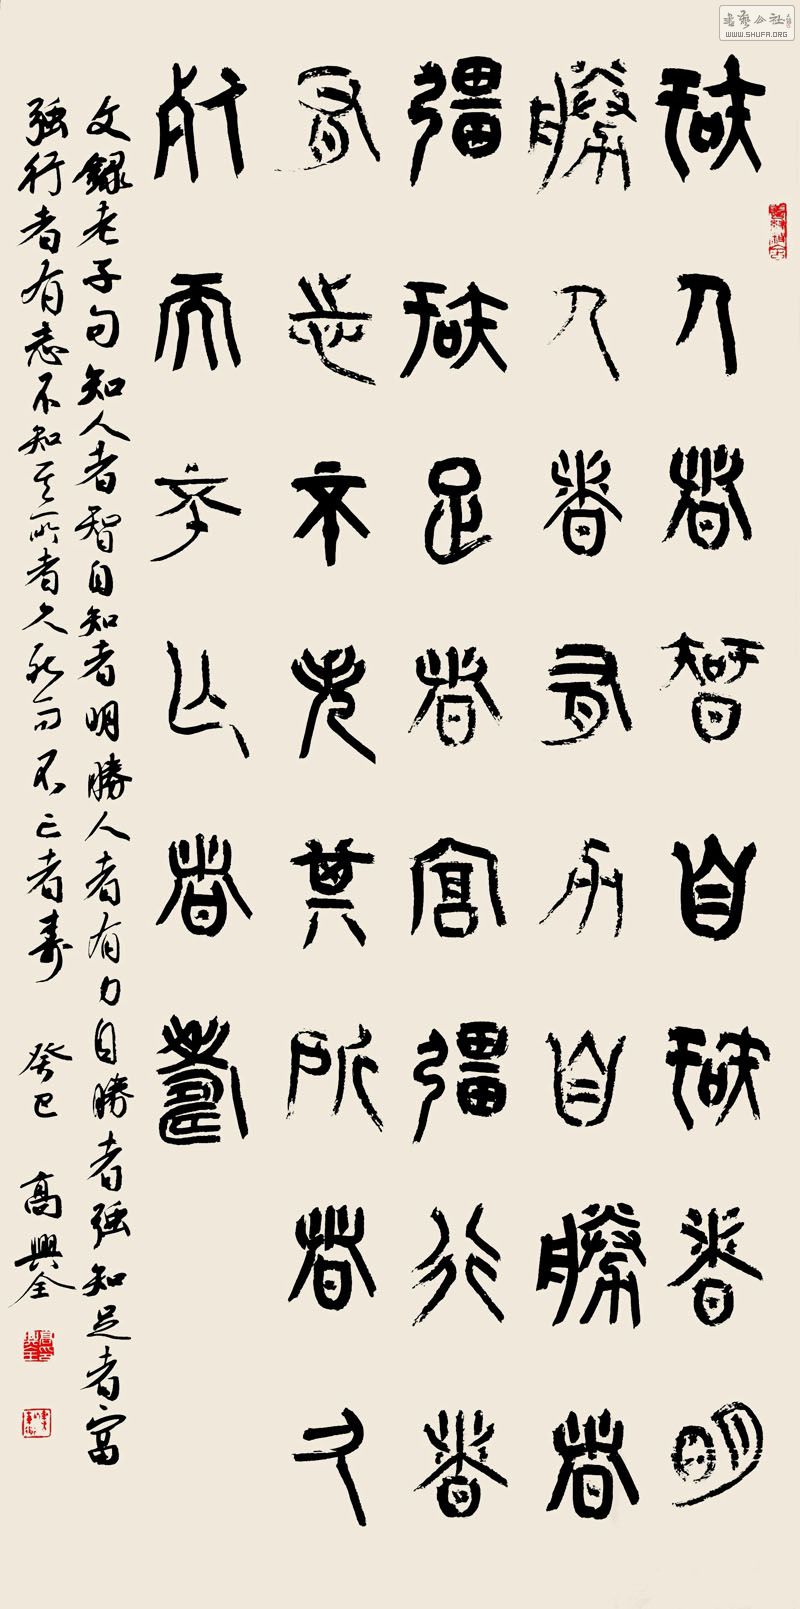 知人者智自知者明
勝人者有力自勝者
彊知足者富彊行者
有志不失其所者久
死而不亡者壽
文錄老子句知人者智自知者明勝人者有力自勝者强知足者富
强行者有志不知其所者久死而不亡者壽 癸巳 高興全
書藝公社
WWW.SHUFA.ORG